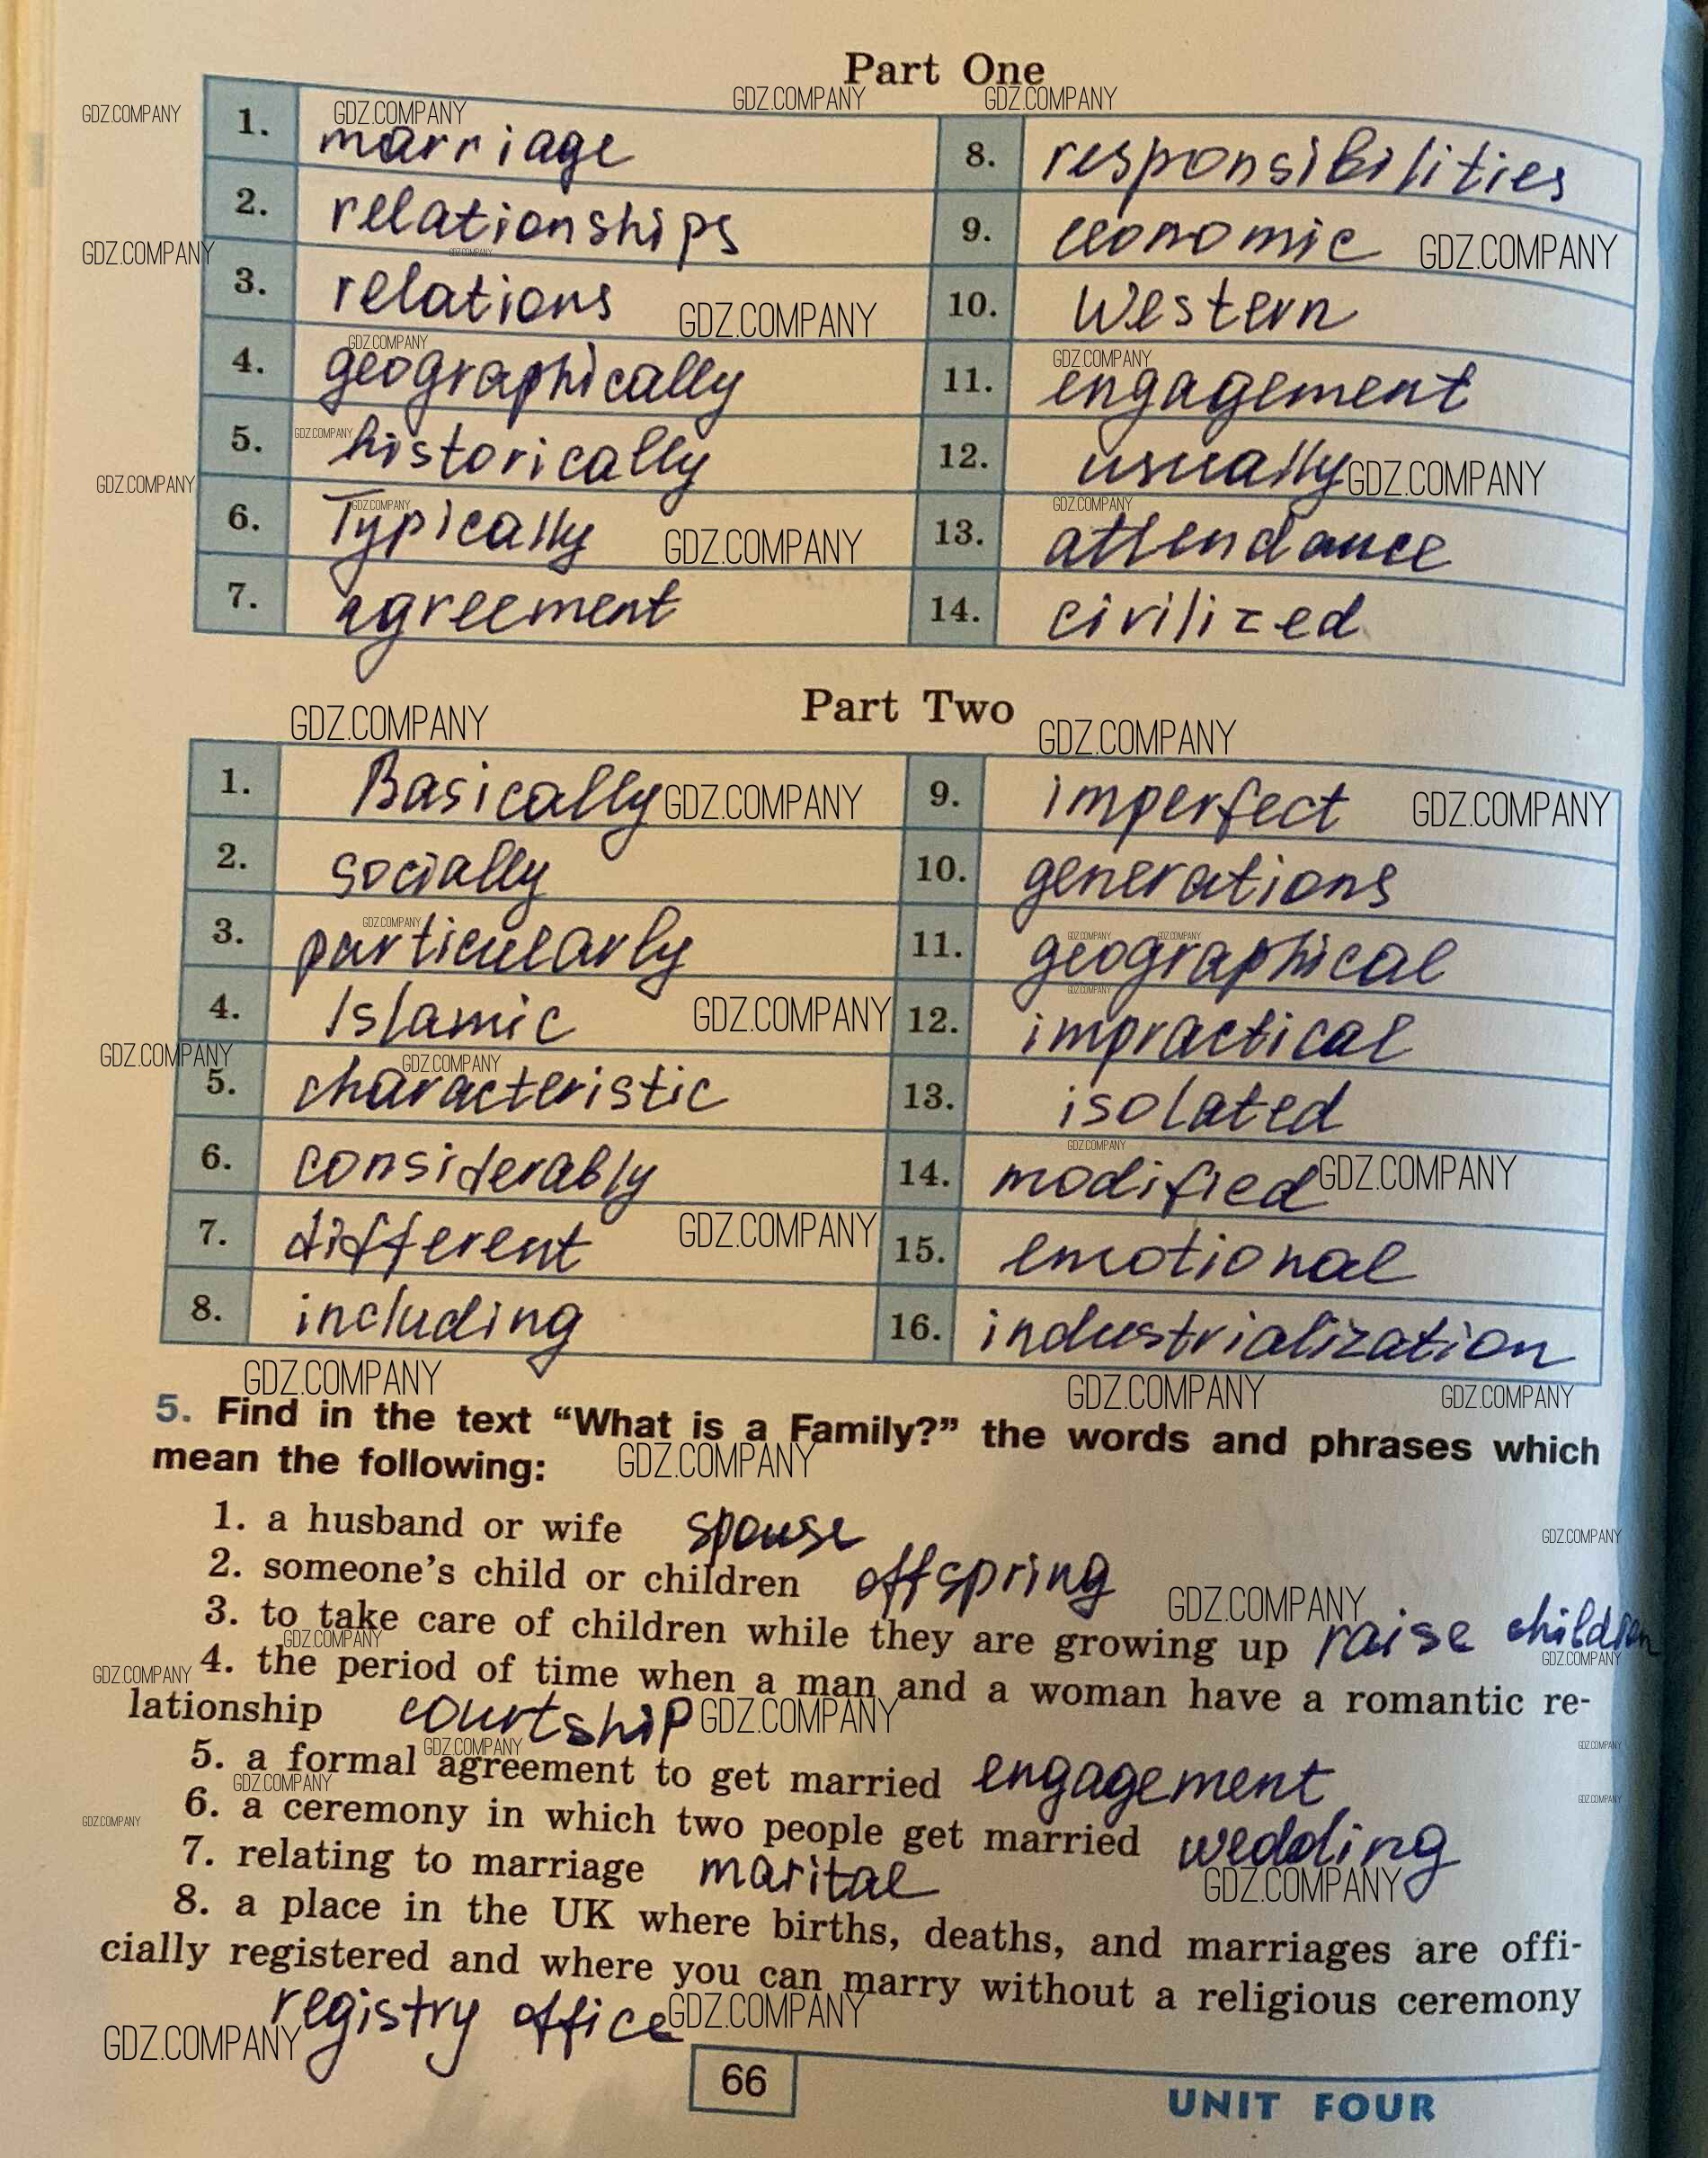 Part One
1. marriage
2. relationships
3. relations
4. geographically
5. historically
6. Typically
7. agreement
8. responsibilities
9. economic
10. Western
11. engagement
12. usually
13. attendance
14. civilized
Part Two
1. Basically
2. socially
3. particularly
4. Islamic
5. characteristic
6. considerably
7. different
8. including
9. imperfect
10. generations
11. geographical
12. impractical
13. isolated
14. modified
15. emotional
16. industrialization
5. Find in the text “What is a Family?” the words and phrases which
mean the following:
1. a husband or wife spouse
2. someone’s child or children offspring
3. to take care of children while they are growing up raise children
4. the period of time when a man and a woman have a romantic re-
lationship courtship
5. a formal agreement to get married engagement
6. a ceremony in which two people get married wedding
7. relating to marriage marital
8. a place in the UK where births, deaths, and marriages are offi-
cially registered and where you can marry without a religious ceremony
registry office
66
UNIT FOUR
GDZ.COMPANY